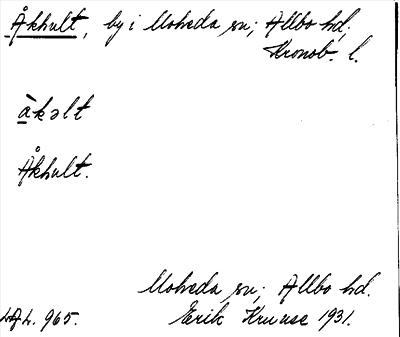 Åkhult, by i Moheda sn; Allbo hd;
Kronob. l.
àkəlt
Åkhult.
Moheda sn; Allbo hd.
LAL. 965. Erik Kruuse 1931.